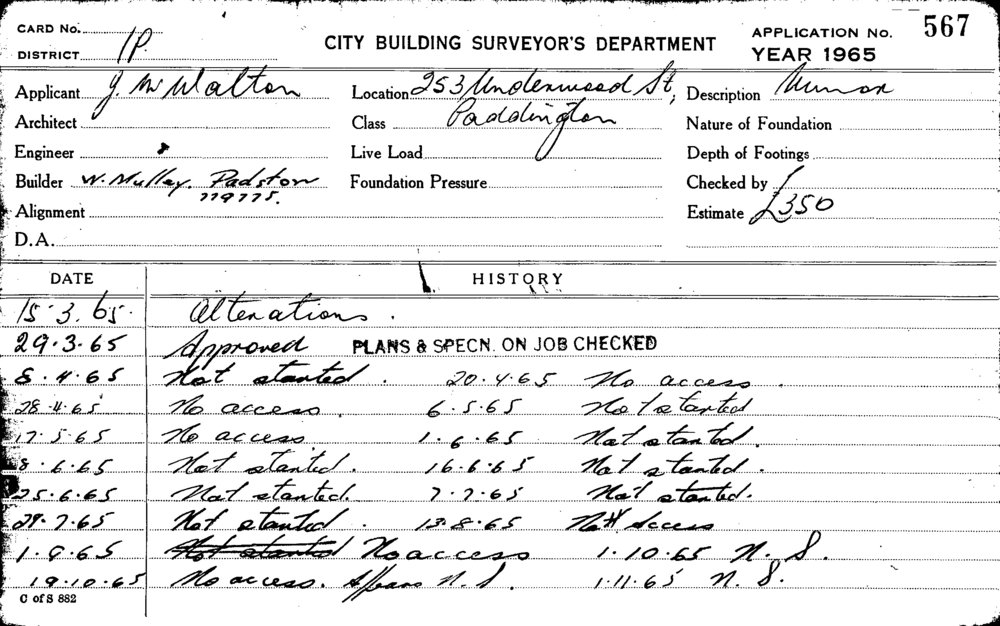 CARD No.
DISTRICT 1P
CITY BUILDING SURVEYOR'S DEPARTMENT
APPLICATION No. 567
YEAR 1965
Applicant J. W Walton
Location 253 Underwood St,
Description Minor
Architect
Class Paddington
Nature of Foundation
Engineer
Live Load
Depth of Footings
Builder W. Mulley. Padston
779775.
Foundation Pressure
Checked by
Alignment
Estimate £350
D.A.
DATE HISTORY
15.3.65. Alterations.
29.3.65 Approved PLANS & SPECN. ON JOB CHECKED
8.4.65 Not started. 20.4.65 No access.
28.4.65 No access. 6.5.65 Not started
17.5.65 No access. 1.6.65 Not started.
8.6.65 Not started. 16.6.65 Not started.
25.6.65 Not started. 7.7.65 Not started.
29.7.65 Not started. 13.8.65 No Access
1.9.65 Not started No access 1.10.65 N.S.
19.10.65 No access. Appears N.S. 1.11.65 N.S.
C of S 882